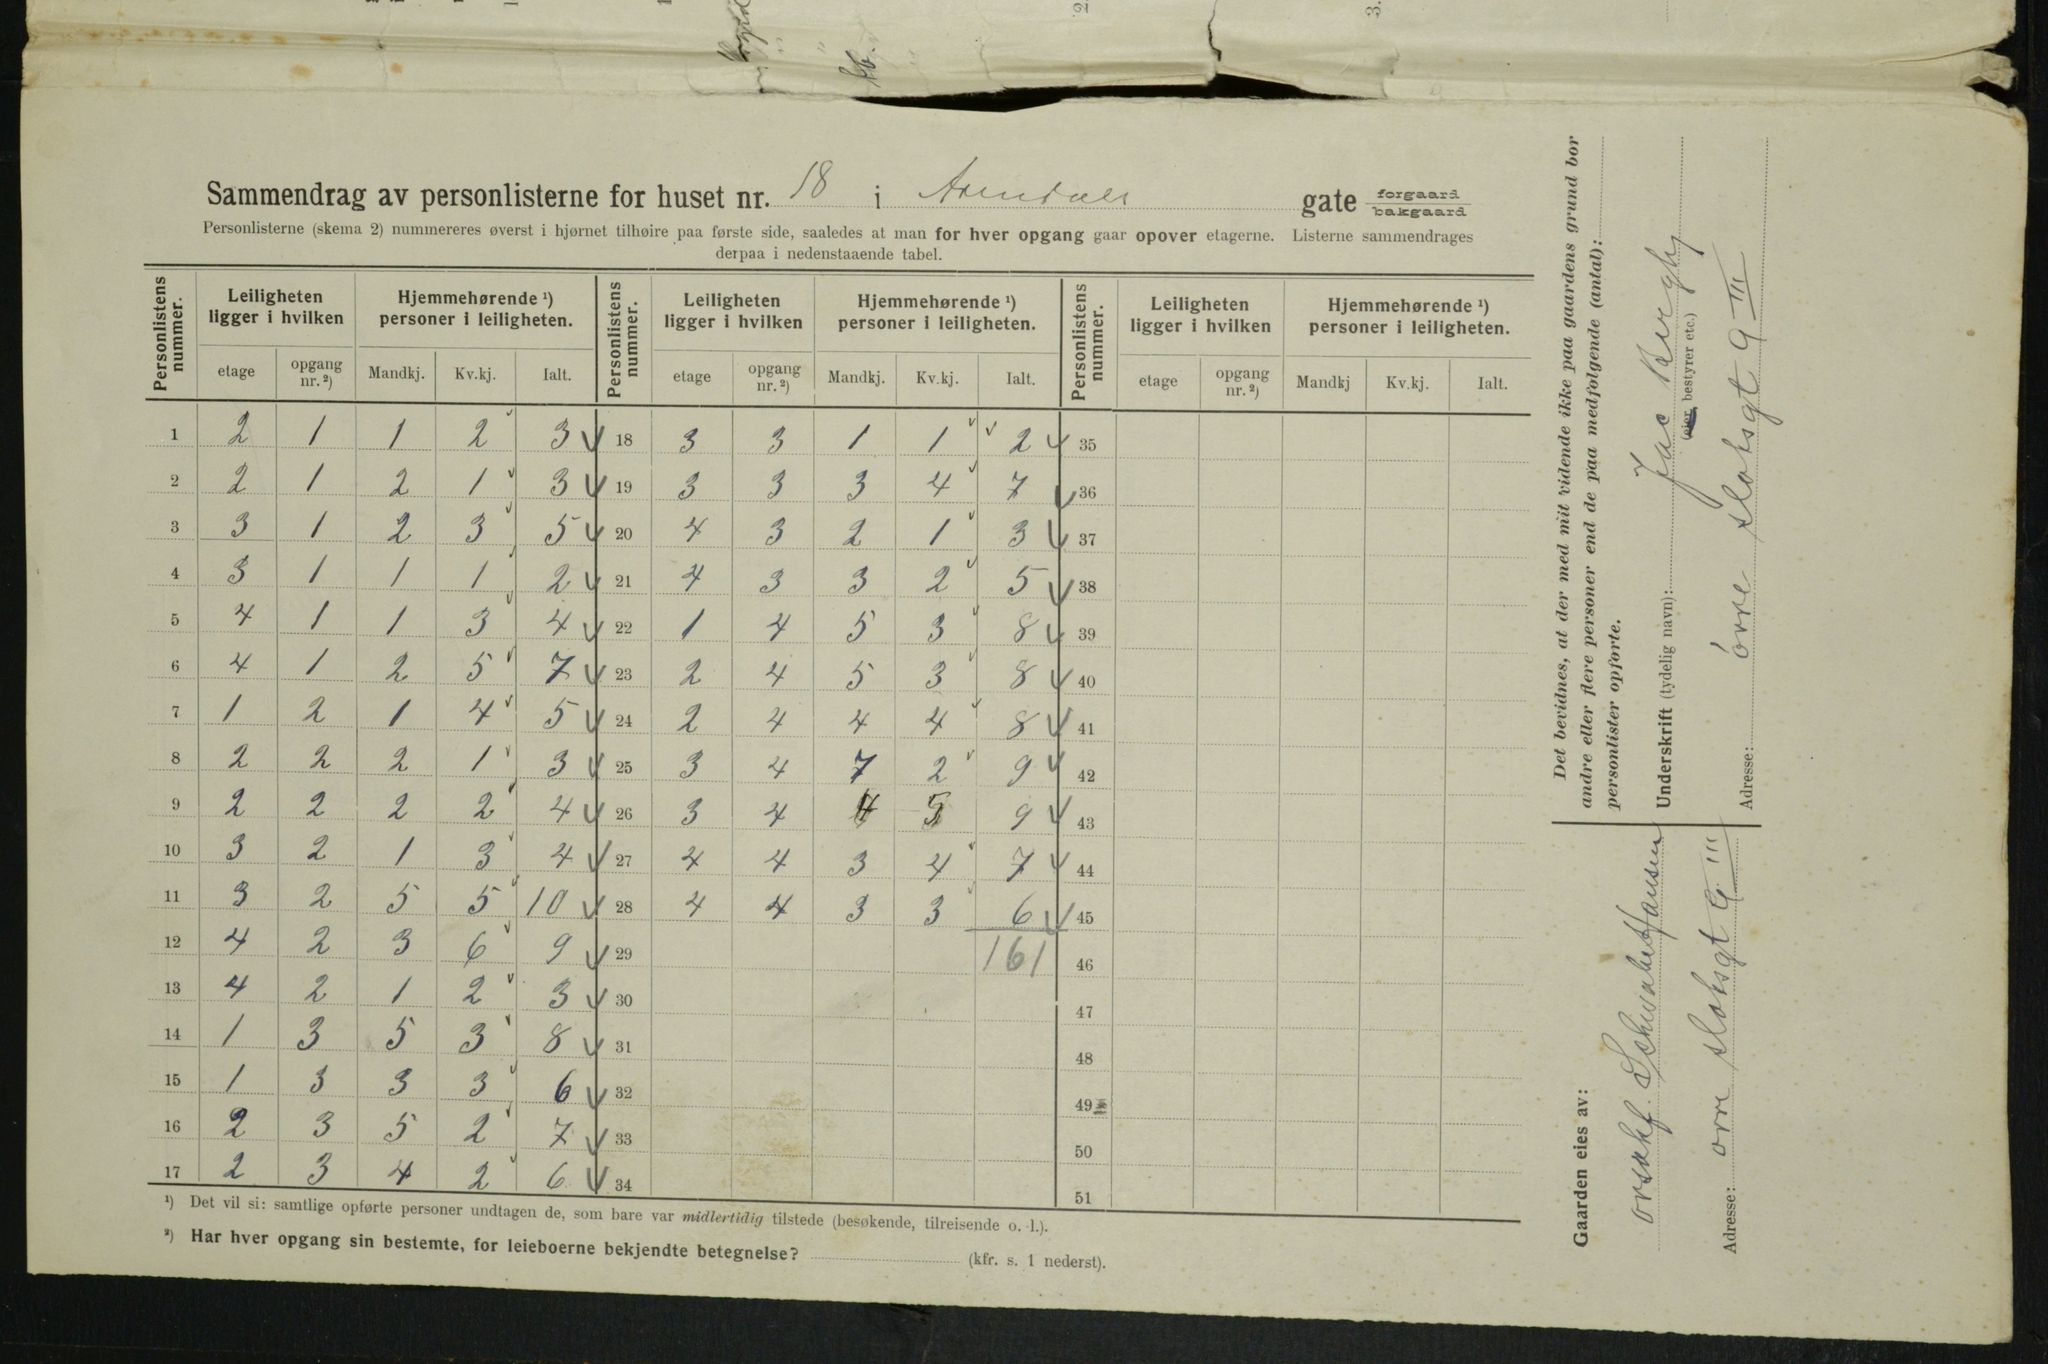 Sammendrag av personlisterne for huset nr. 18 i Arendals gate forgaard bakgaard
Personlisterne (skema 2) nummereres øverst i hjørnet tilhøire paa første side, saaledes at man for hver opgang gaar opover etagerne. Listerne sammendrages
derpaa i nedenstaaende tabel.
Personlistens nummer. Leiligheten ligger i hvilken Hjemmehørende ¹) personer i leiligheten. Personlistens nummer. Leiligheten ligger i hvilken Hjemmehørende ¹) personer i leiligheten. Personlistens nummer. Leiligheten ligger i hvilken Hjemmehørende ¹) personer i leiligheten.
etage opgang nr. ²) Mandkj. Kv.kj. Ialt. etage opgang nr. ²) Mandkj. Kv.kj. Ialt. etage opgang nr. ²) Mandkj Kv.kj. Ialt.
1 2 1 1 2 3 18 3 3 1 1 2 35
2 2 1 2 1 3 19 3 3 3 4 7 36
3 3 1 2 3 5 20 4 3 2 1 3 37
4 3 1 1 1 2 21 4 3 3 2 5 38
5 4 1 1 3 4 22 1 4 5 3 8 39
6 4 1 2 5 7 23 2 4 5 3 8 40
7 1 2 1 4 5 24 2 4 4 4 8 41
8 2 2 2 1 3 25 3 4 7 2 9 42
9 2 2 2 2 4 26 3 4 4 5 9 43
10 3 2 1 3 4 27 4 4 3 4 7 44
11 3 2 5 5 10 28 4 4 3 3 6 45
12 4 2 3 6 9 29 161 46
13 4 2 1 2 3 30 47
14 1 3 5 3 8 31 48
15 1 3 3 3 6 32 49
16 2 3 5 2 7 33 50
17 2 3 4 2 6 34 51
¹) Det vil si: samtlige opførte personer undtagen de, som bare var midlertidig tilstede (besøkende, tilreisende o. l.).
²) Har hver opgang sin bestemte, for leieboerne bekjendte betegnelse? (kfr. s. 1 nederst).
Det bevidnes, at der med mit vidende ikke paa gaardens grund bor
andre eller flere personer end de paa medfølgende (antal):
personlister opførte.
Underskrift (tydelig navn): Jac Bergh
(eier, bestyrer etc.)
Adresse: övre slotsgt 9 III
Gaarden eies av:
orsakf. Schwabe Hansen
Adresse: ovre slotsgt 9 III